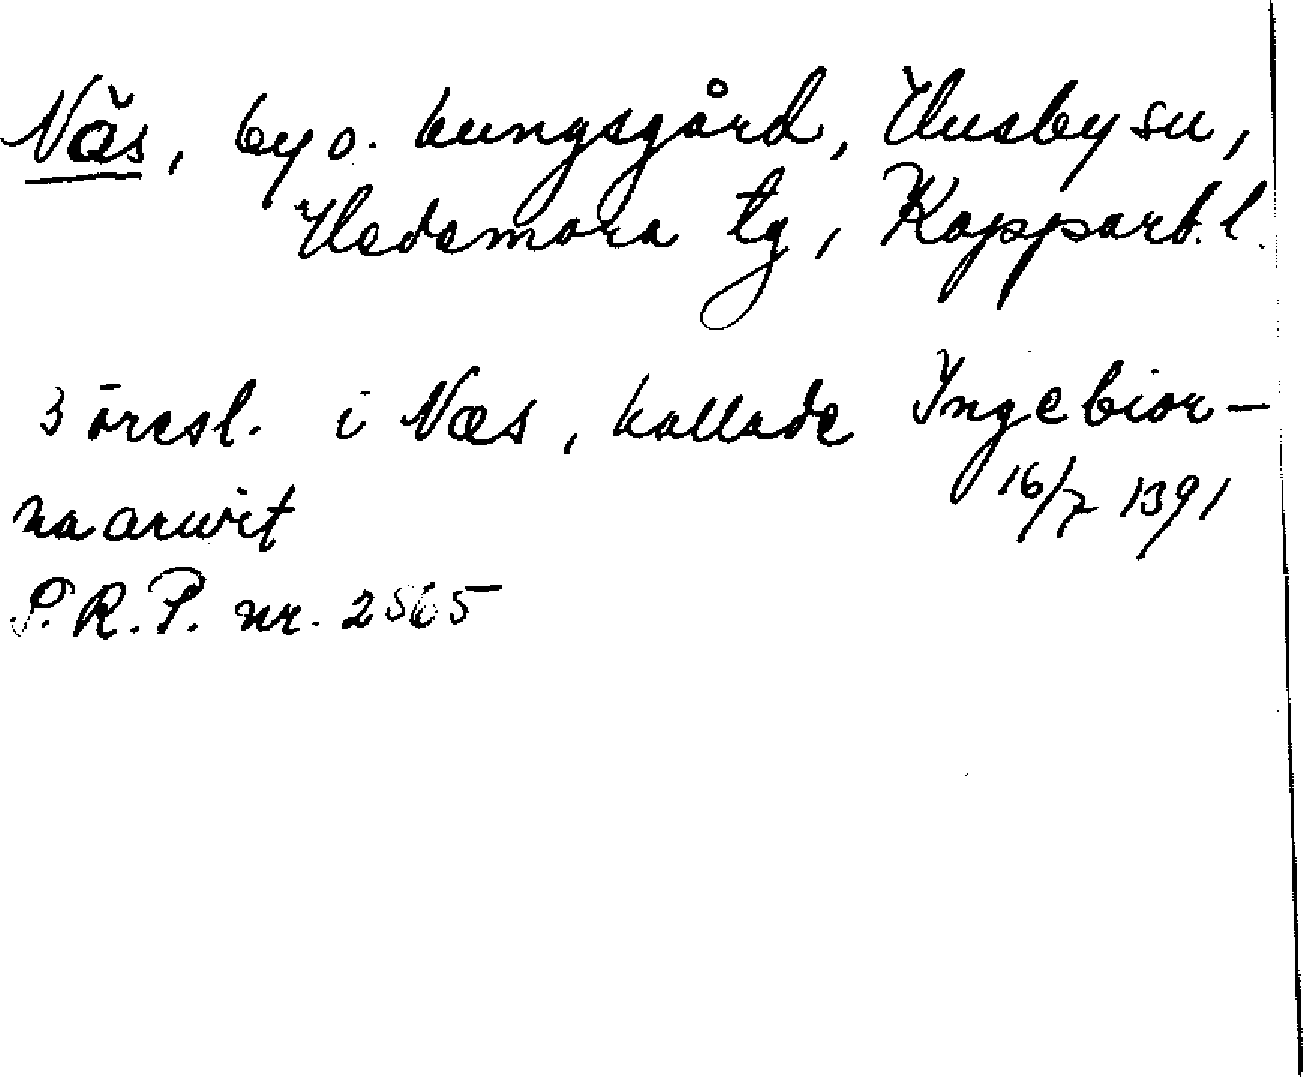 Näs, by o. kungsgård, Husby sn,
Hedemora tg, Kopparb. l.
3 öresl. i Næs, kallade Ingebior-
na arwit 16/7 1391
S.R.P. nr. 2565